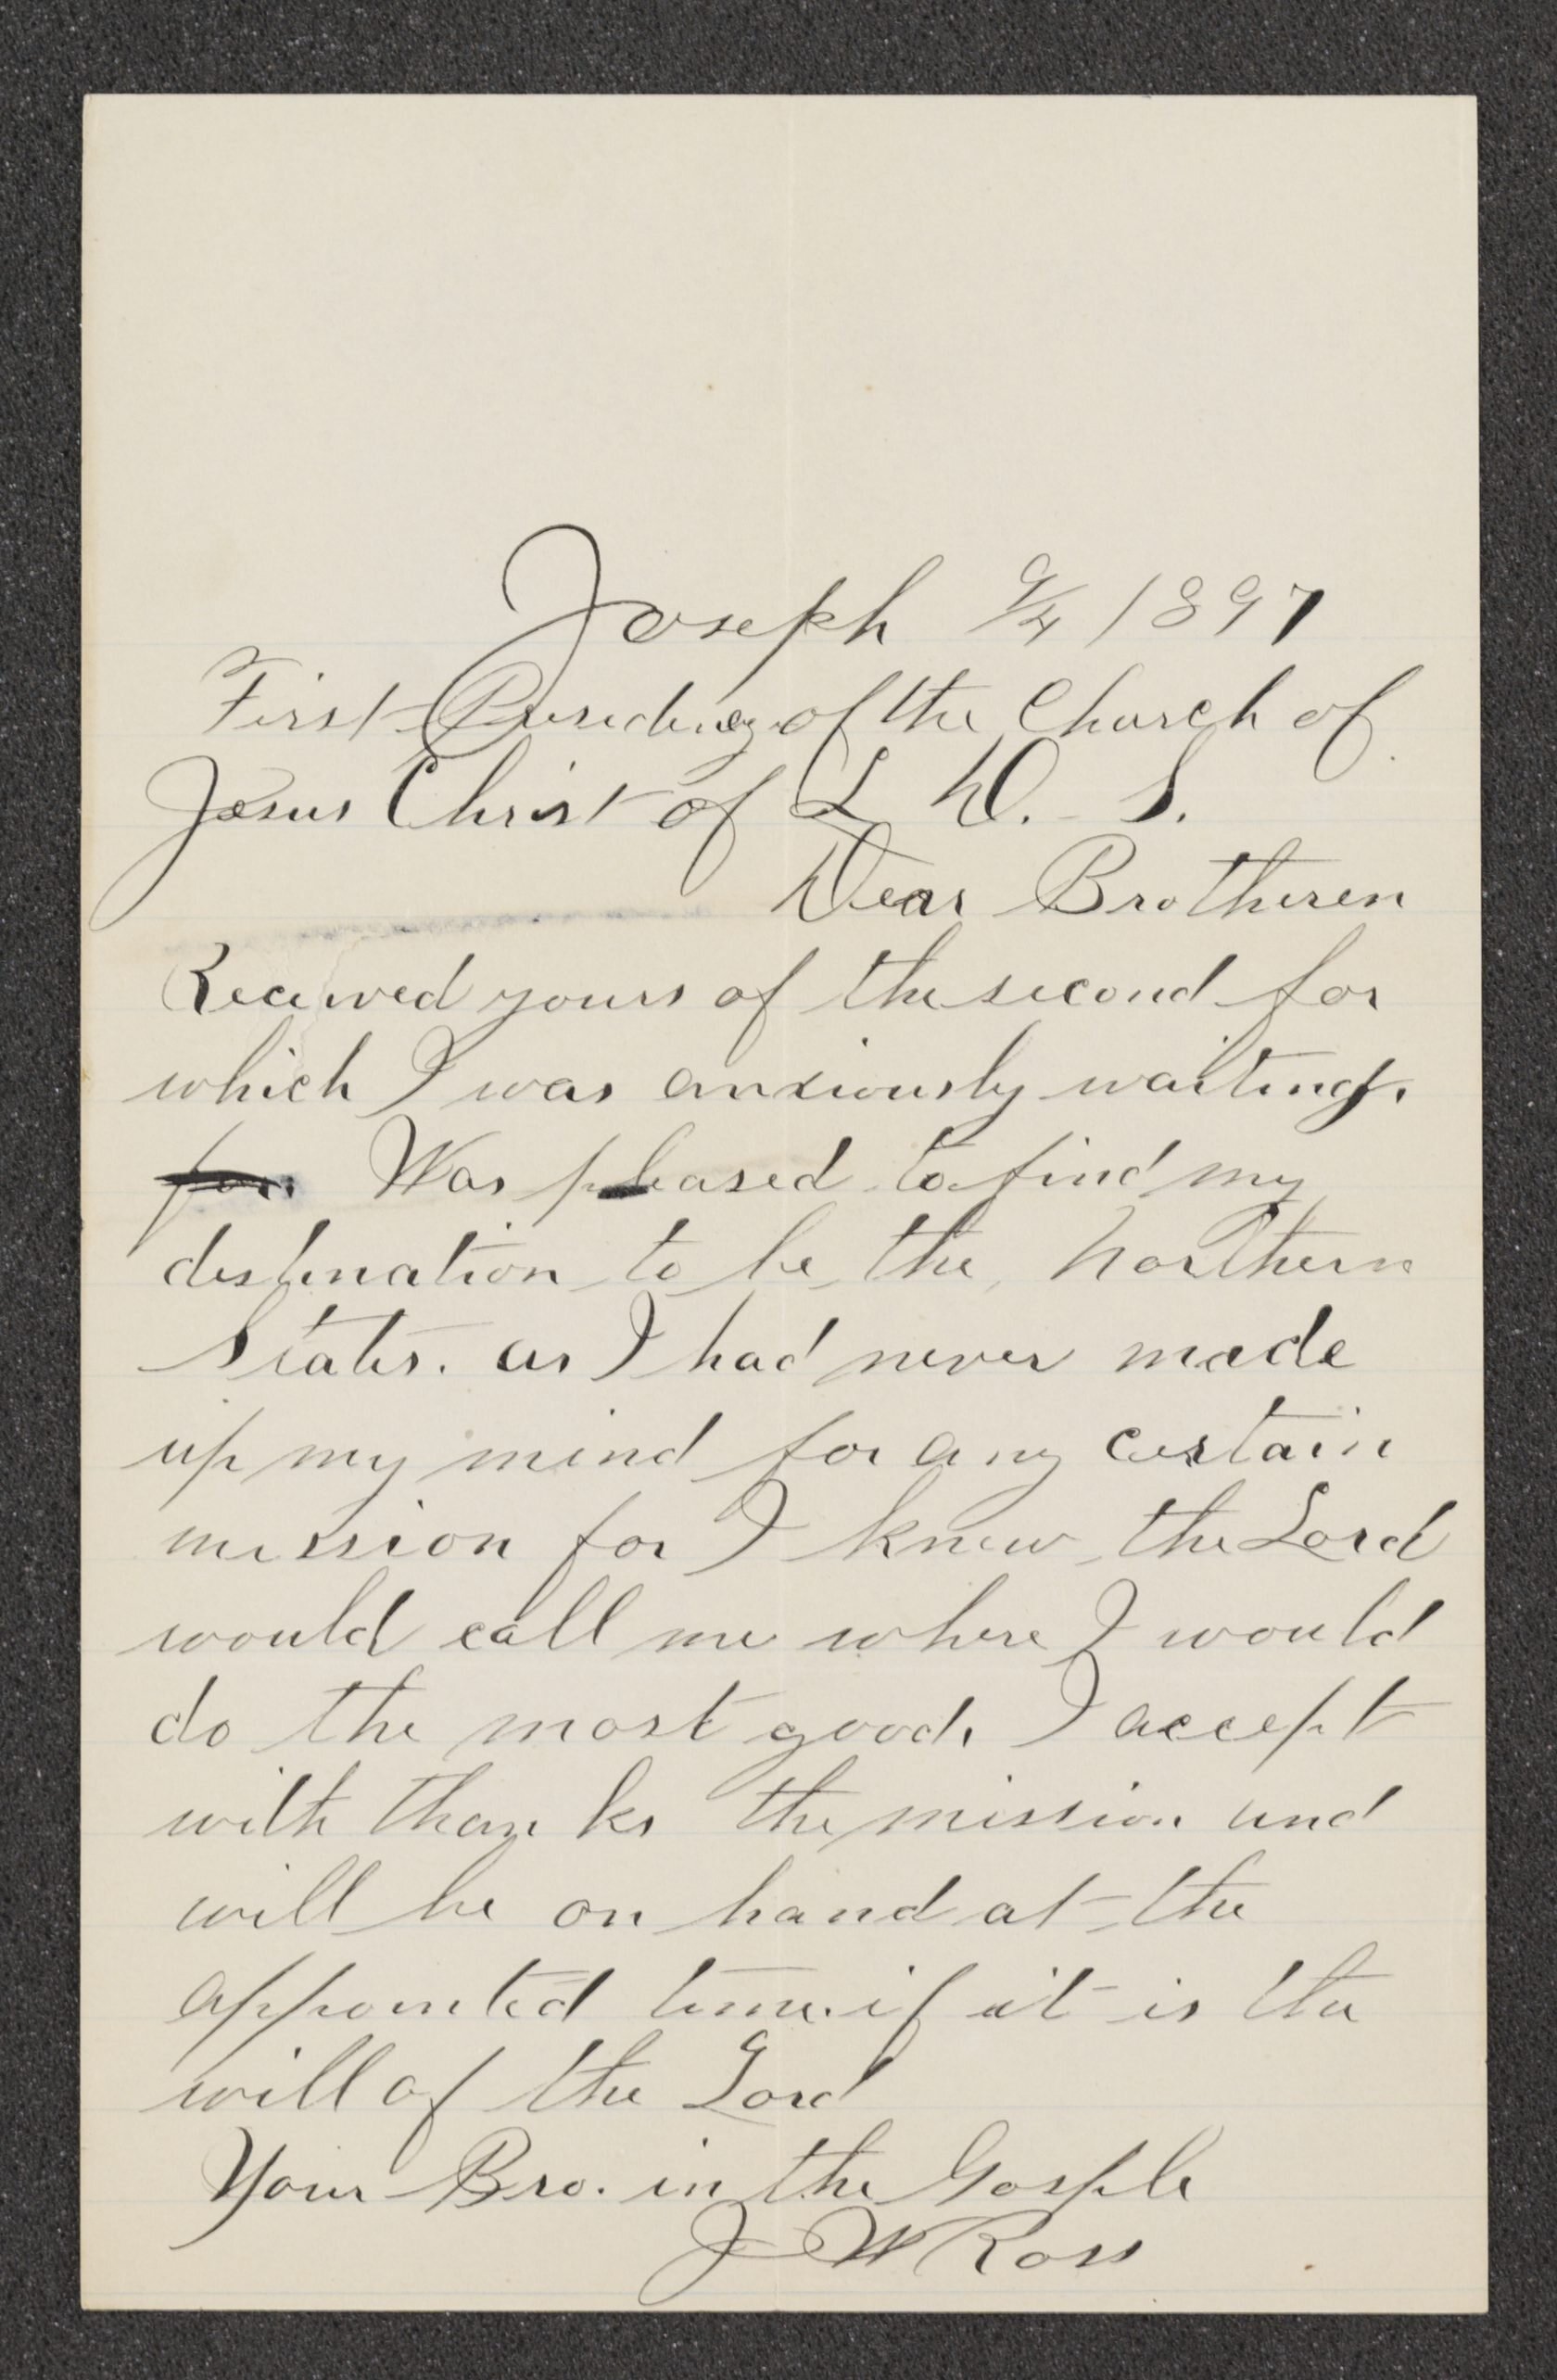 Joseph 9/4 1897
First Presidency of the Church of
Jesus Christ of L D. S.
Dear Brotheren
Received yours of the second for
which I was anxiously waiting.
for. Was pleased to find my
destination to be the Northern
States. as I had never made
up my mind for any certain
mission for I knew the Lord
would call me where I would
do the most good. I accept
with thanks the mission and
will be on hand at the
appointed time. if it is the
will of the Lord
Your Bro. in the Gosple
J W Ross